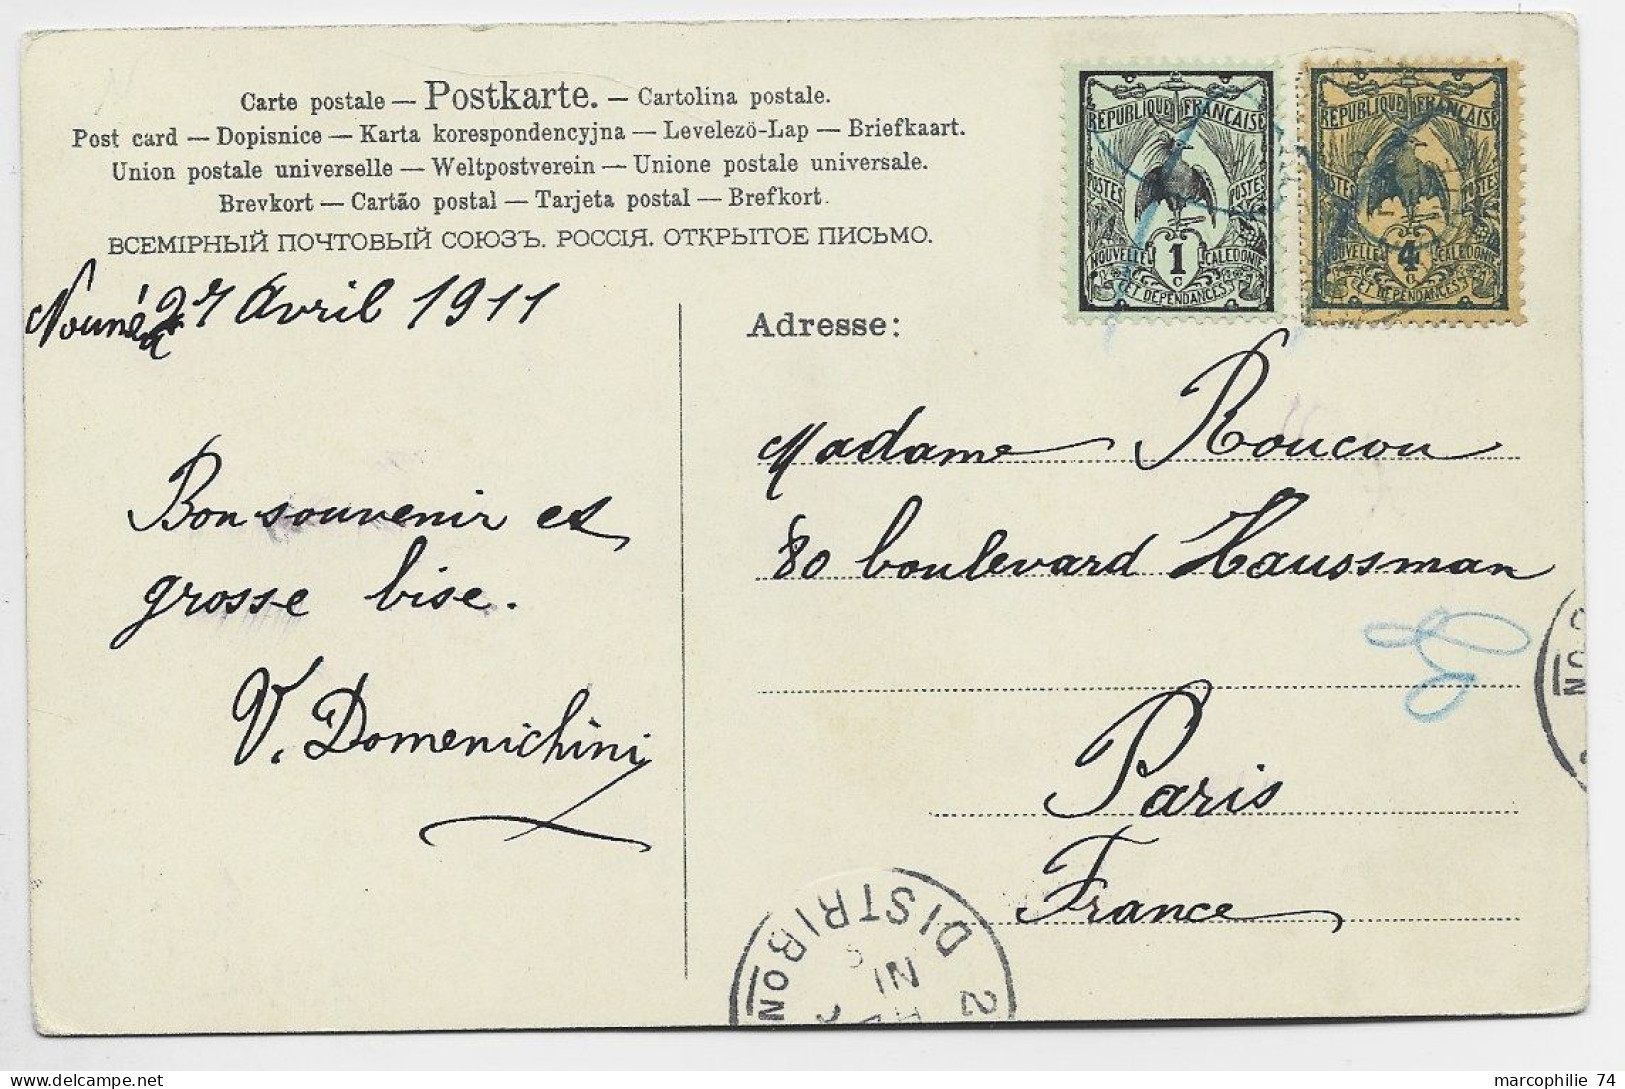 Carte postale — Postkarte. — Cartolina postale.
Post card — Dopisnice — Karta korespondencyjna — Levelezö-Lap — Briefkaart.
Union postale universelle — Weltpostverein — Unione postale universale.
Brevkort — Cartão postal — Tarjeta postal — Brefkort.
ВСЕМІРНЫЙ ПОЧТОВЫЙ СОЮЗЪ. РОССІЯ. ОТКРЫТОЕ ПИСЬМО.
REPUBLIQUE FRANÇAISE
POSTES POSTES
1 c
NOUVELLE CALEDONIE
ET DEPENDANCES
REPUBLIQUE FRANÇAISE
POSTES POSTES
4 c
NOUVELLE CALEDONIE
ET DEPENDANCES
Nouméa 27 Avril 1911
Bon souvenir et
grosse bise.
V. Domenichini
Adresse:
Madame Roucou
80 boulevard Haussman
Paris
France
DISTRIBON
2
marcophilie 74